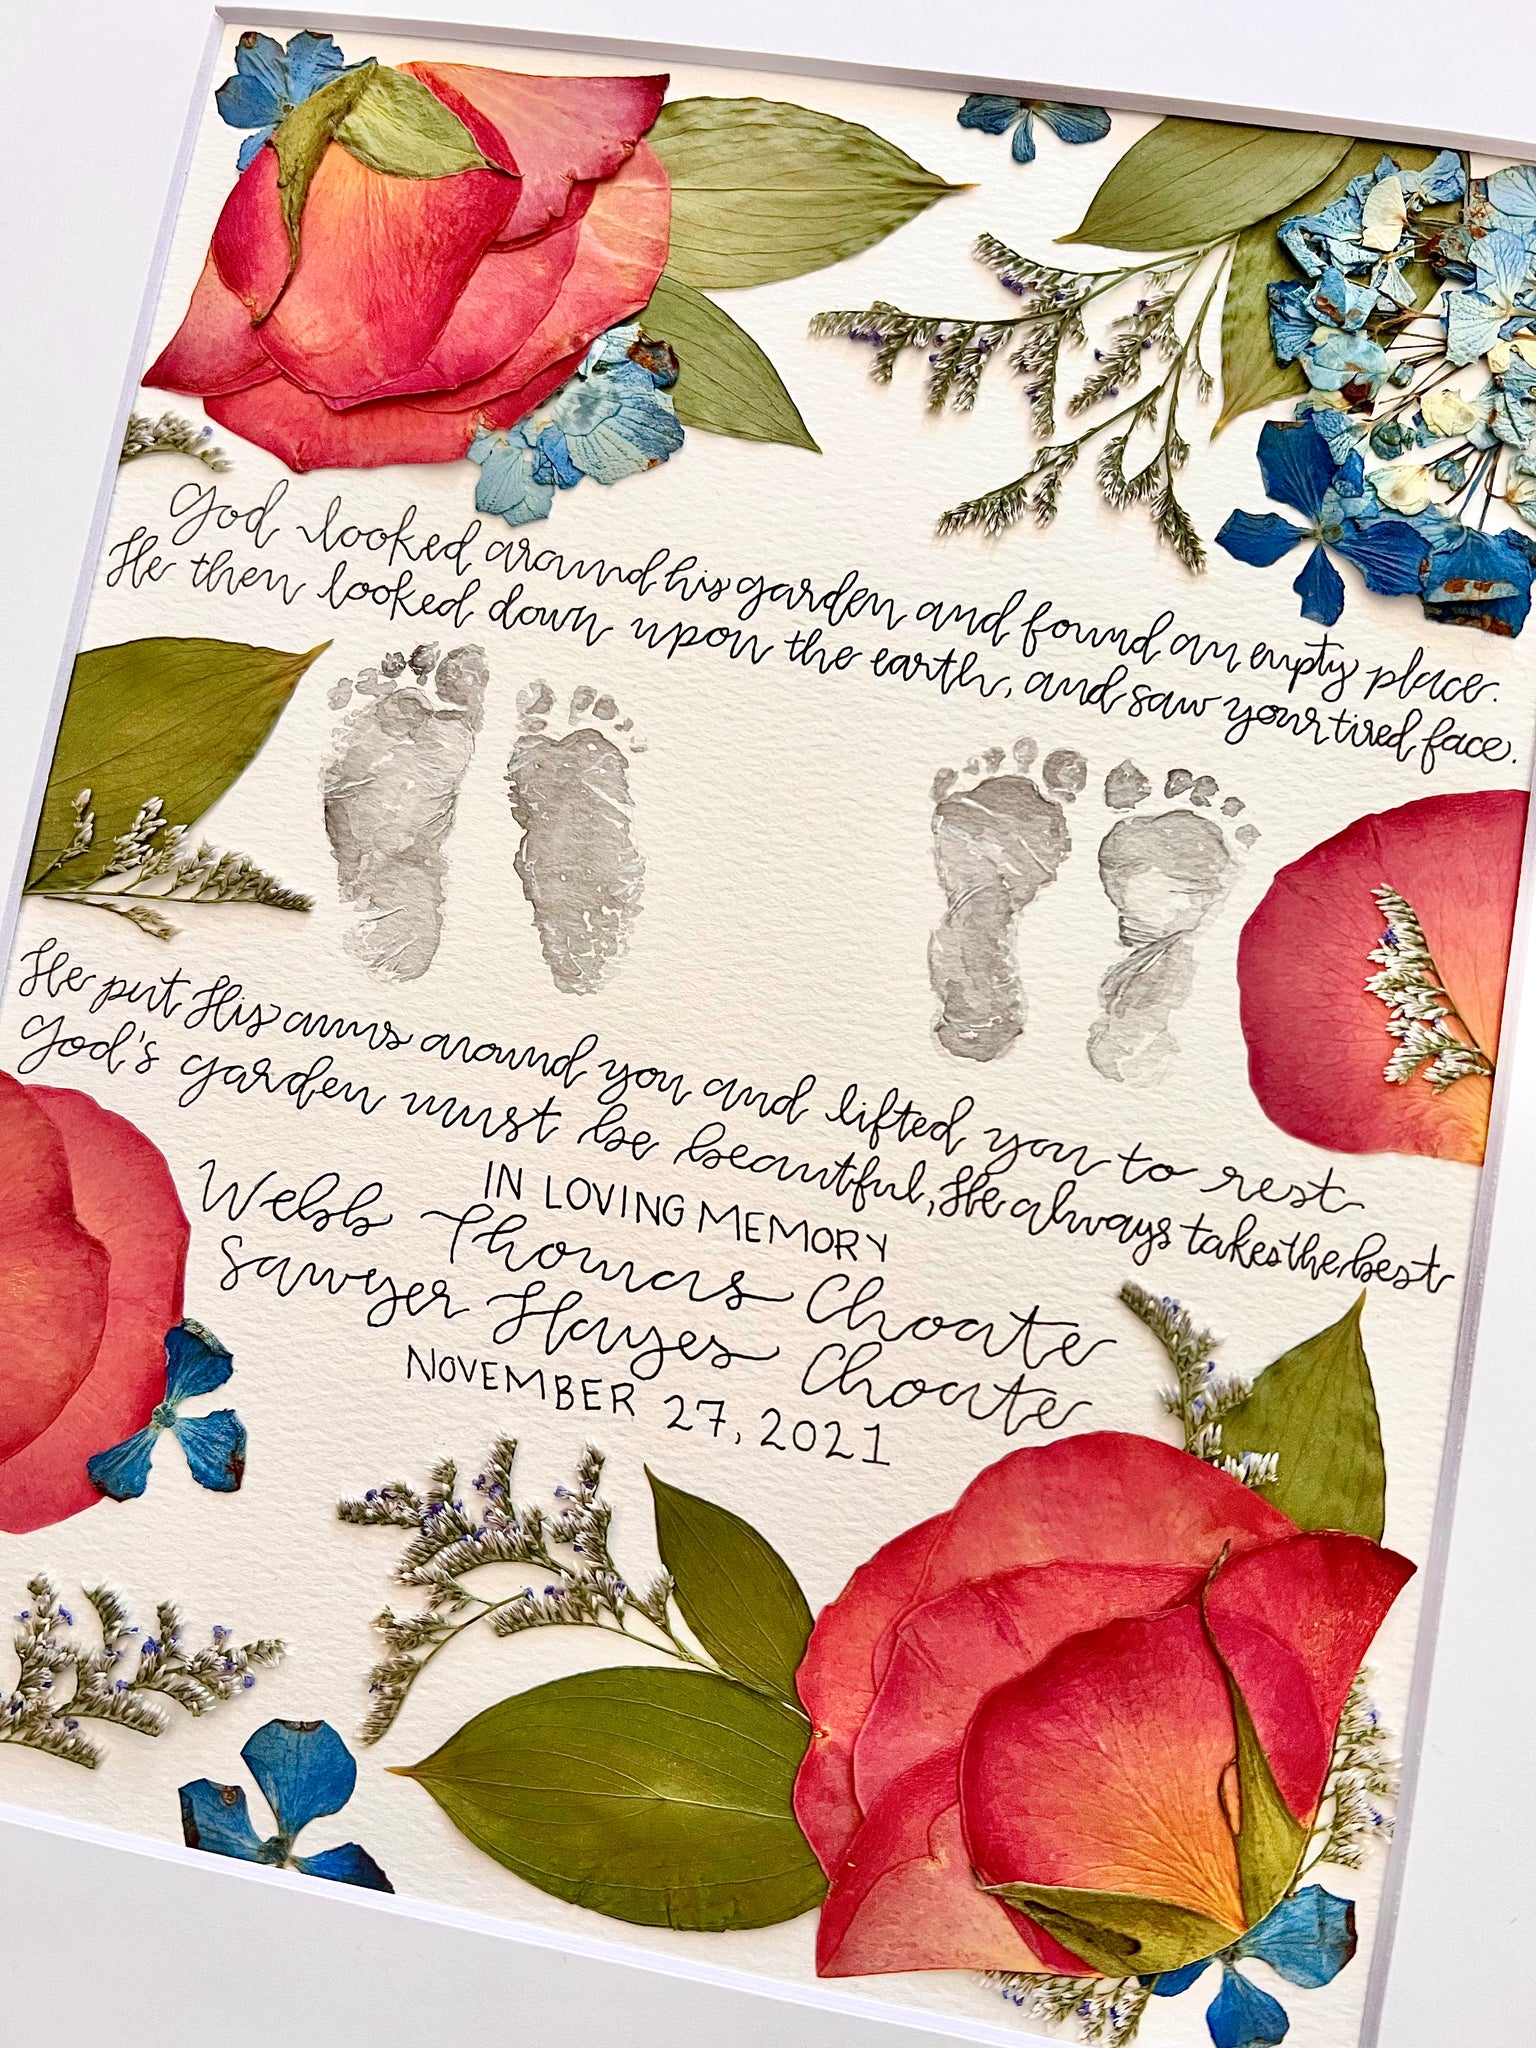 God looked around his garden and found an empty place.
He then looked down upon the earth, and saw your tired face.
He put His arms around you and lifted you to rest
God's garden must be beautiful, He always takes the best
IN LOVING MEMORY
Webb Thomas Choate
Sawyer Hayes Choate
NOVEMBER 27, 2021